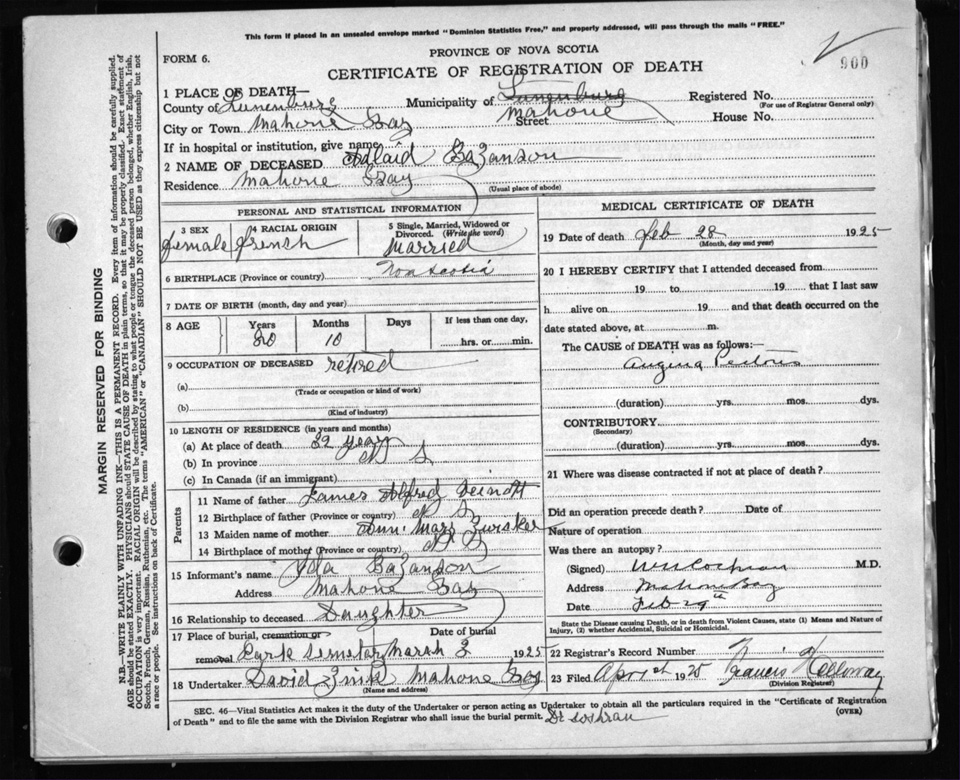 This form if placed in an unsealed envelope marked "Dominion Statistics Free," and properly addressed, will pass through the mails "FREE."
PROVINCE OF NOVA SCOTIA
FORM 6.
900
CERTIFICATE OF REGISTRATION OF DEATH
MARGIN RESERVED FOR BINDING
N.B.—WRITE PLAINLY WITH UNFADING INK—THIS IS A PERMANENT RECORD. Every item of information should be carefully supplied.
AGE should be stated EXACTLY. PHYSICIANS should STATE CAUSE OF DEATH in plain terms, so that it may be properly classified. Exact statement of
OCCUPATION is very important. RACIAL ORIGIN will be described by stating to what people or tongue the deceased person belonged, whether English, Irish,
Scotch, French, German, Russian, Ruthenian, etc. The terms "AMERICAN" or "CANADIAN" SHOULD NOT BE USED as they express citizenship but not
a race or people. See instructions on back of Certificate.
1 PLACE OF DEATH—
County of Lunenburg Municipality of Lunenburg Registered No.
(For use of Registrar General only)
City or Town Mahone Bay Mahone Street House No.
If in hospital or institution, give name
2 NAME OF DECEASED Adlaid Bazanson
Residence Mahone Bay
(Usual place of abode)
PERSONAL AND STATISTICAL INFORMATION
3 SEX female
4 RACIAL ORIGIN french
5 Single, Married, Widowed or Divorced. (Write the word) Married
6 BIRTHPLACE (Province or country) Nova Scotia
7 DATE OF BIRTH (month, day and year)
8 AGE Years 80 Months 10 Days If less than one day, hrs. or min.
9 OCCUPATION OF DECEASED retired
(a)
(Trade or occupation or kind of work)
(b)
(Kind of industry)
10 LENGTH OF RESIDENCE (in years and months)
(a) At place of death years
(b) In province N S
(c) In Canada (if an immigrant)
Parents
11 Name of father James Alfred
12 Birthplace of father (Province or country) N S
13 Maiden name of mother Ann Mary
14 Birthplace of mother (Province or country) N S
15 Informant's name Ida Bazanson
Address Mahone Bay
16 Relationship to deceased Daughter
17 Place of burial, cremation or removal Date of burial
March 2 1925
18 Undertaker David Zink Mahone Bay
(Name and address)
MEDICAL CERTIFICATE OF DEATH
19 Date of death Feb 28 1925
(Month, day and year)
20 I HEREBY CERTIFY that I attended deceased from
19 to 19 that I last saw
h alive on 19 and that death occurred on the
date stated above, at m.
The CAUSE of DEATH was as follows:
Angina Pectoris
(duration) yrs. mos. dys.
CONTRIBUTORY
(Secondary)
(duration) yrs. mos. dys.
21 Where was disease contracted if not at place of death?
Did an operation precede death? Date of
Nature of operation
Was there an autopsy?
(Signed) Cochran M.D.
Address Mahone Bay
Date Feb
State the Disease causing Death, or in death from Violent Causes, state (1) Means and Nature of
Injury, (2) whether Accidental, Suicidal or Homicidal.
22 Registrar's Record Number
23 Filed Apr 1st 1925 Francis
(Division Registrar)
SEC. 46—Vital Statistics Act makes it the duty of the Undertaker or person acting as Undertaker to obtain all the particulars required in the "Certificate of Registration
of Death" and to file the same with the Division Registrar who shall issue the burial permit. Dr Coshran
(OVER)